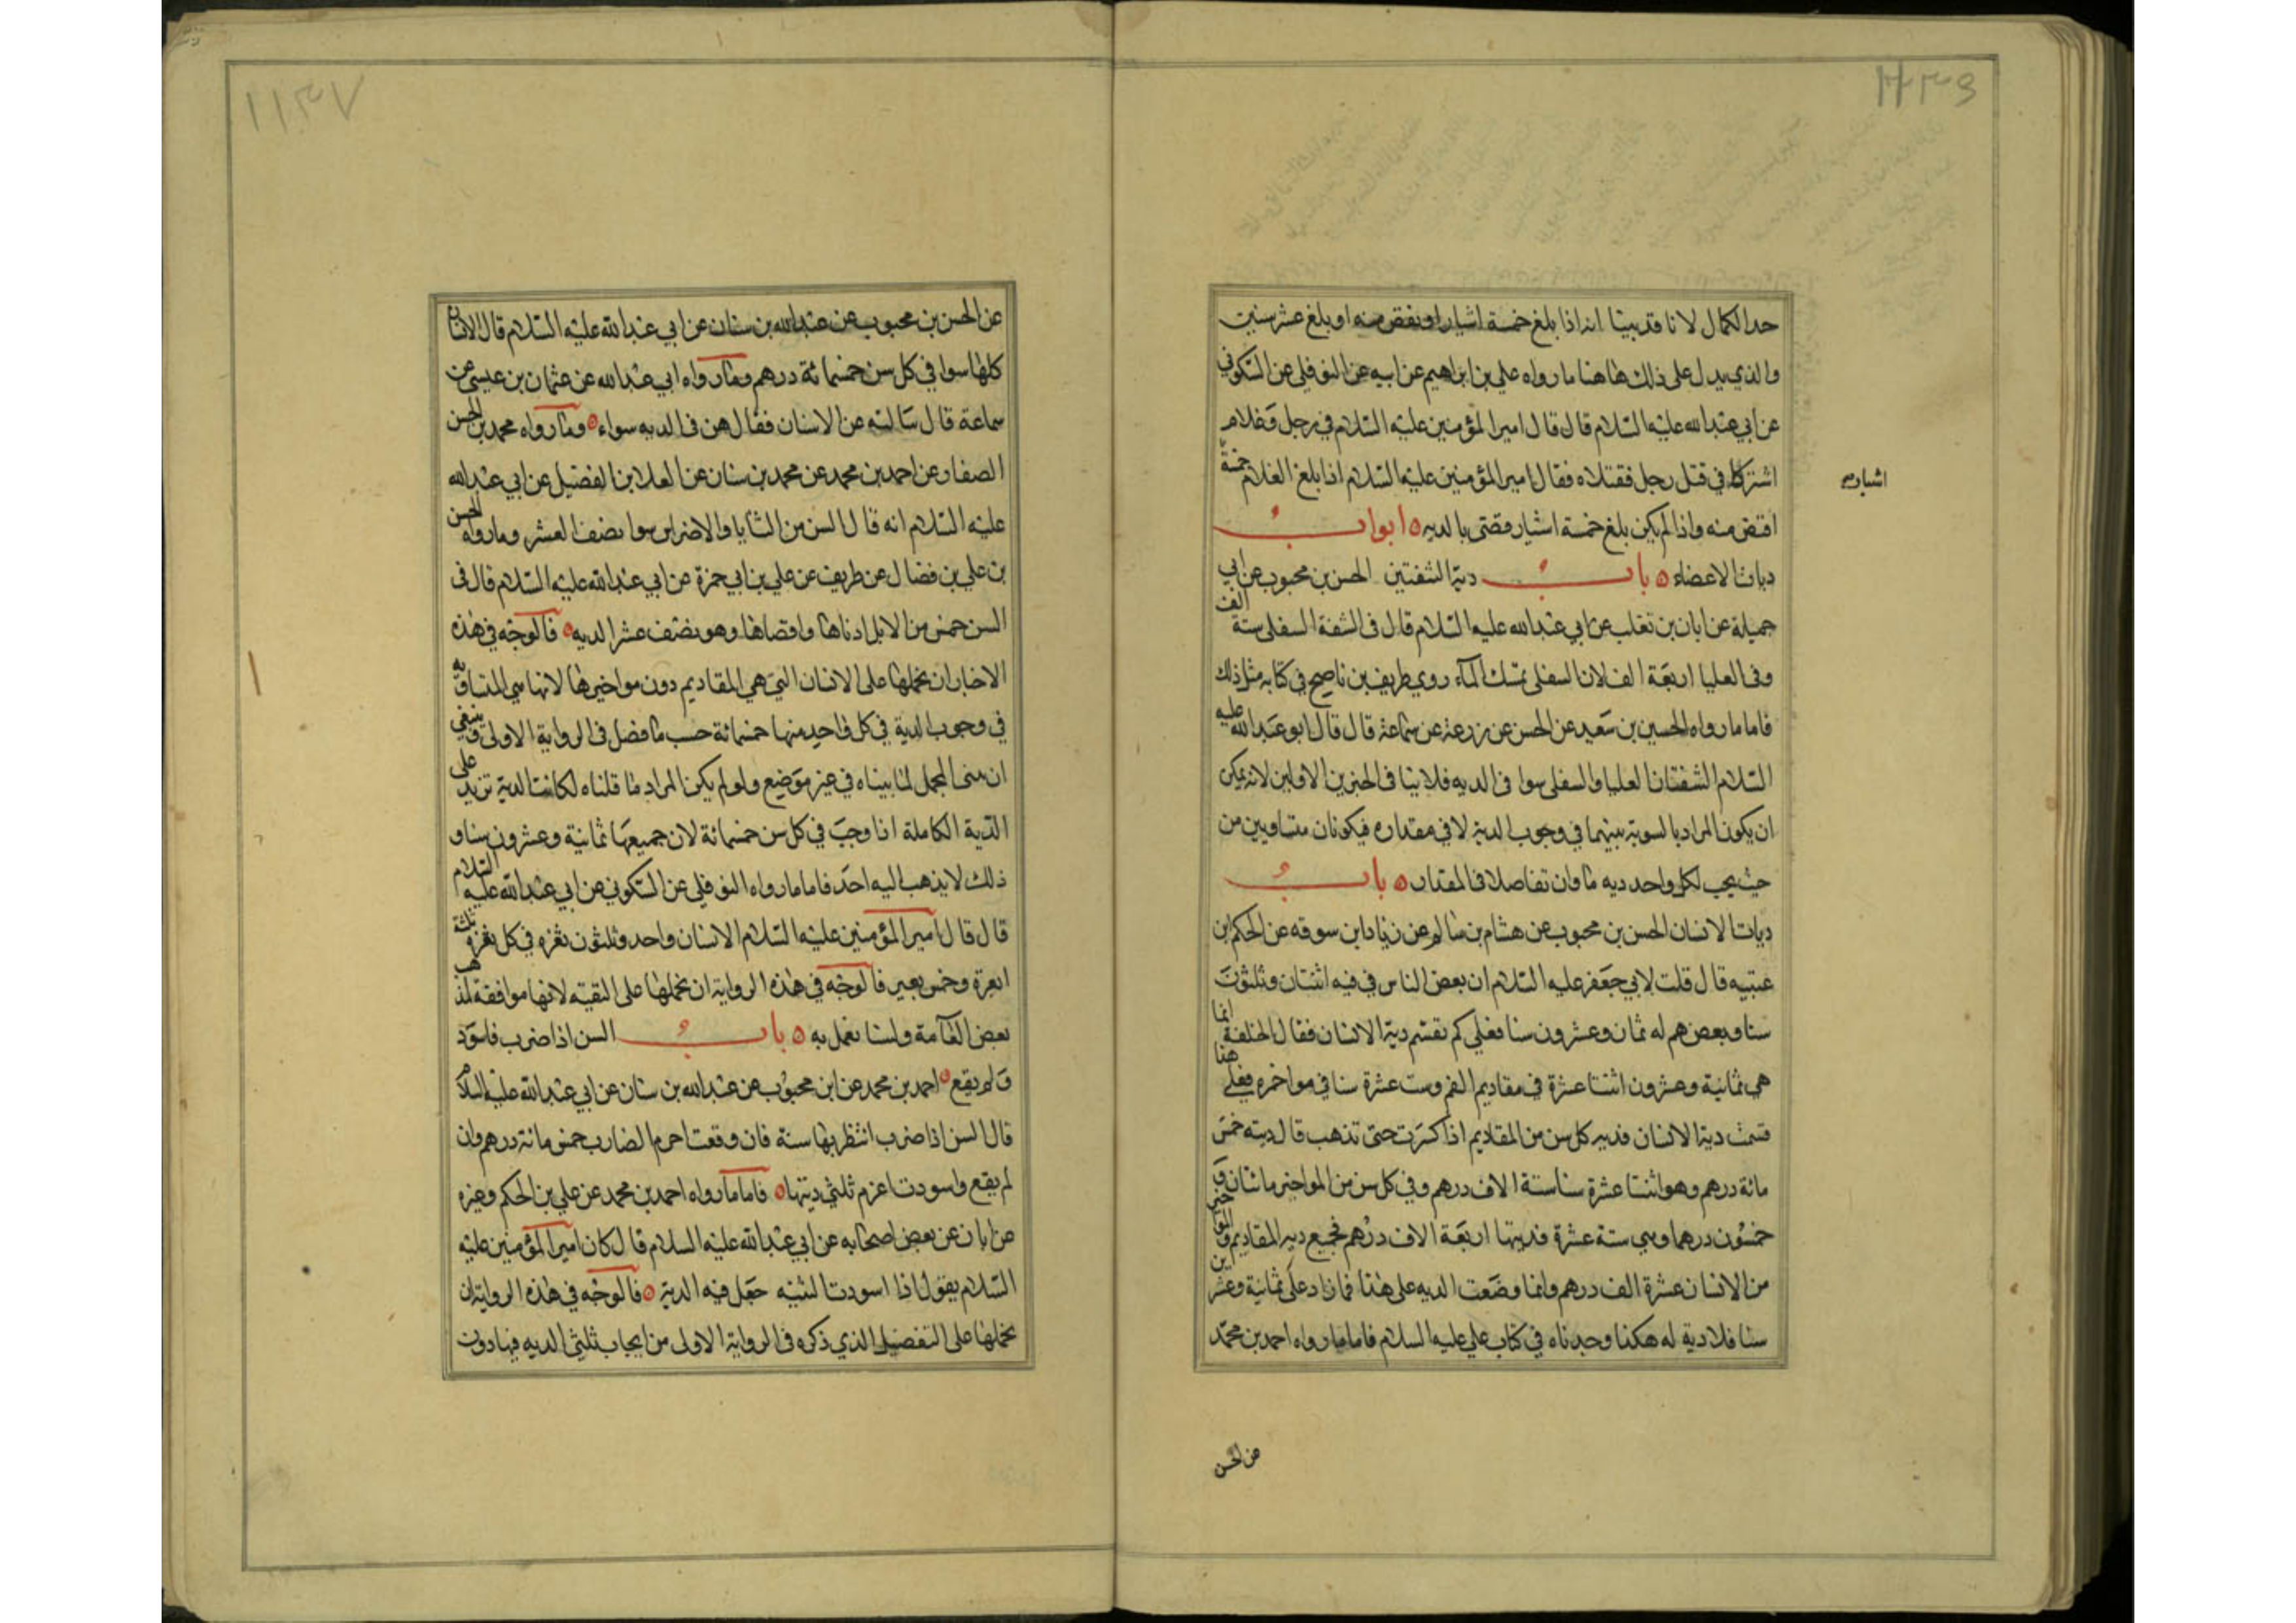 ١١٣٦
حد الكمال لانا قد بينا انه اذا بلغ خمسة اشبار اقتص منه او بلغ عشر سنين
والذي يدل على ذلك هاهنا ما رواه علي بن ابراهيم عن ابيه عن النوفلي عن السكوني
عن ابي عبدالله عليه السلام قال قال امير المؤمنين عليه السلام في رجل وغلام
اشتركا في قتل رجل فقتلاه فقال امير المؤمنين عليه السلام اذا بلغ الغلام خمسة
اشبار
اقتص منه واذا لم يكن بلغ خمسة اشبار قضى بالديه ابواب
ديات الاعضاء باب دية الشفتين الحسن بن محبوب عن ابي
جميلة عن ابان بن تغلب عن ابي عبدالله عليه السلام قال في الشفة السفلى ستة الف
وفي العليا اربعة الف لان السفلى تمسك المآء روي طريف بن ناصح في كتابه مثل ذلك
فاما ما رواه الحسين بن سعيد عن الحسن عن زرعة عن سماعة قال قال ابو عبدالله عليه
السلام الشفتان العليا والسفلى سوا في الديه فلا ينافى الخبرين الاولين لانه يمكن
ان يكون المراد بالسوية بينهما في وجوب الدية لا في مقداره فيكونان متساويين من
حيث يجب لكل واحد ديه ما وان تفاضلا في المقدار باب
ديات الاسنان الحسن بن محبوب عن هشام بن سالم عن زياد ابن سوقه عن الحكم ابن
عتيبه قال قلت لابي جعفر عليه السلام ان بعض الناس في فيه اثنتان وثلثون
سنا وبعضهم له ثمان وعشرون سنا فعلى كم تقسم دية الاسنان فقال الخلقة انما
هي ثمانية وعشرون اثنتا عشرة في مقاديم الفم وست عشرة سنا في مواخره فعلى هذا
قسمت دية الاسنان فديه كل سن من المقاديم اذا كسرت حتى تذهب قال ديته خمس
مائة درهم وهو اثنتا عشرة سنا ستة الاف درهم وفي كل سن من المواخير مائتان و
خمسون درهما وهي ستة عشرة فديتها اربعة الاف درهم فجميع ديه المقاديم والمواخير
من الاسنان عشرة الف درهم وانما وضعت الديه على هذا فما زاد على ثمانية وعشرين
سنا فلا دية له هكذا وجدناه في كتاب علي عليه السلام فاما ما رواه احمد بن محمد
عن الحسن
١١٣٧
عن الحسن بن محبوب عن عبدالله بن سنان عن ابي عبدالله عليه السلام قال الاسنان
كلها سوا في كل سن خمسمائة درهم وما رواه ابي عبدالله عن عثمان بن عيسى عن
سماعة قال سالته عن الاسنان فقال هن في الديه سواء وما رواه محمد بن الحسن
الصفار عن احمد بن محمد عن محمد بن سنان عن العلا بن الفضيل عن ابي عبدالله
عليه السلام انه قال السن من الثنايا والاضراس سوا نصف العشر وما رواه الحسن
بن علي بن فضال عن طريف عن علي بن ابي حمزة عن ابي عبدالله عليه السلام قال في
السن خمس من الابل ادناها واقصاها وهو نصف عشر الديه فالوجه في هذه
الاخبار ان نحملها على الاسنان التي هي المقاديم دون مواخيرها لانها هي المتساوية
في وجوب الدية في كل واحد منها خمسمائة حسب ما فصل في الرواية الاولى وينبغي
ان يبنى المجمل لما بيناه في غير موضع ولو لم يكن المراد ما قلناه لكانت الدية تزيد على
الدية الكاملة اذا وجب في كل سن خمسمائة لان جميعها ثمانية وعشرون سنا و
ذلك لا يذهب اليه احد فاما ما رواه النوفلي عن السكوني عن ابي عبدالله عليه السلام
قال قال امير المؤمنين عليه السلام الاسنان واحد وثلثون ثغره في كل ثغره ثلثة
ابعرة وخمس بعير فالوجه في هذه الرواية ان نحملها على التقية لانها موافقة لمذهب
بعض العآمة ولسنا نعمل به باب السن اذا ضرب فاسود
ولم يقع احمد بن محمد عن ابن محبوب عن عبدالله بن سنان عن ابي عبدالله عليه السلام
قال السن اذا ضرب انتظر بها سنة فان وقعت اغرم الضارب خمس مائة درهم وان
لم يقع واسودت اغرم ثلثي ديتها فاما ما رواه احمد بن محمد عن علي بن الحكم وغيره
عن ابان عن بعض اصحابه عن ابي عبدالله عليه السلام قال كان امير المؤمنين عليه
السلام يقول اذا اسودت الثنيه جعل فيه الدية فالوجه في هذه الرواية ان
نحملها على التفصيل الذي ذكره في الرواية الاولى من ايجاب ثلثي الديه فيها دون